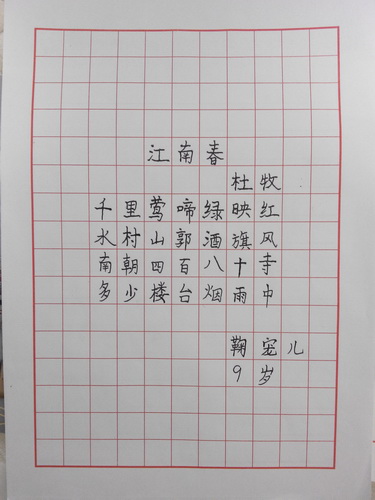 江南春
杜牧
千里莺啼绿映红
水村山郭酒旗风
南朝四百八十寺
多少楼台烟雨中
鞠宠儿
9岁